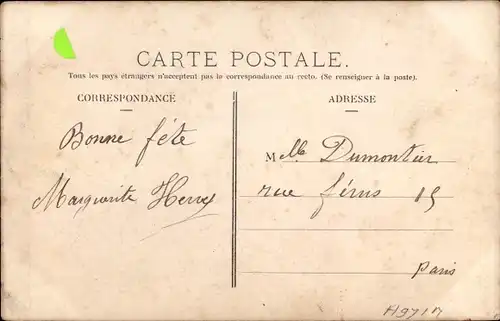 CARTE POSTALE.
Tous les pays étrangers n'acceptent pas la correspondance au recto. (Se renseigner à la poste).
CORRESPONDANCE
ADRESSE
Bonne fête
Marguerite Henry
Melle Dumontier
rue férus 15
Paris